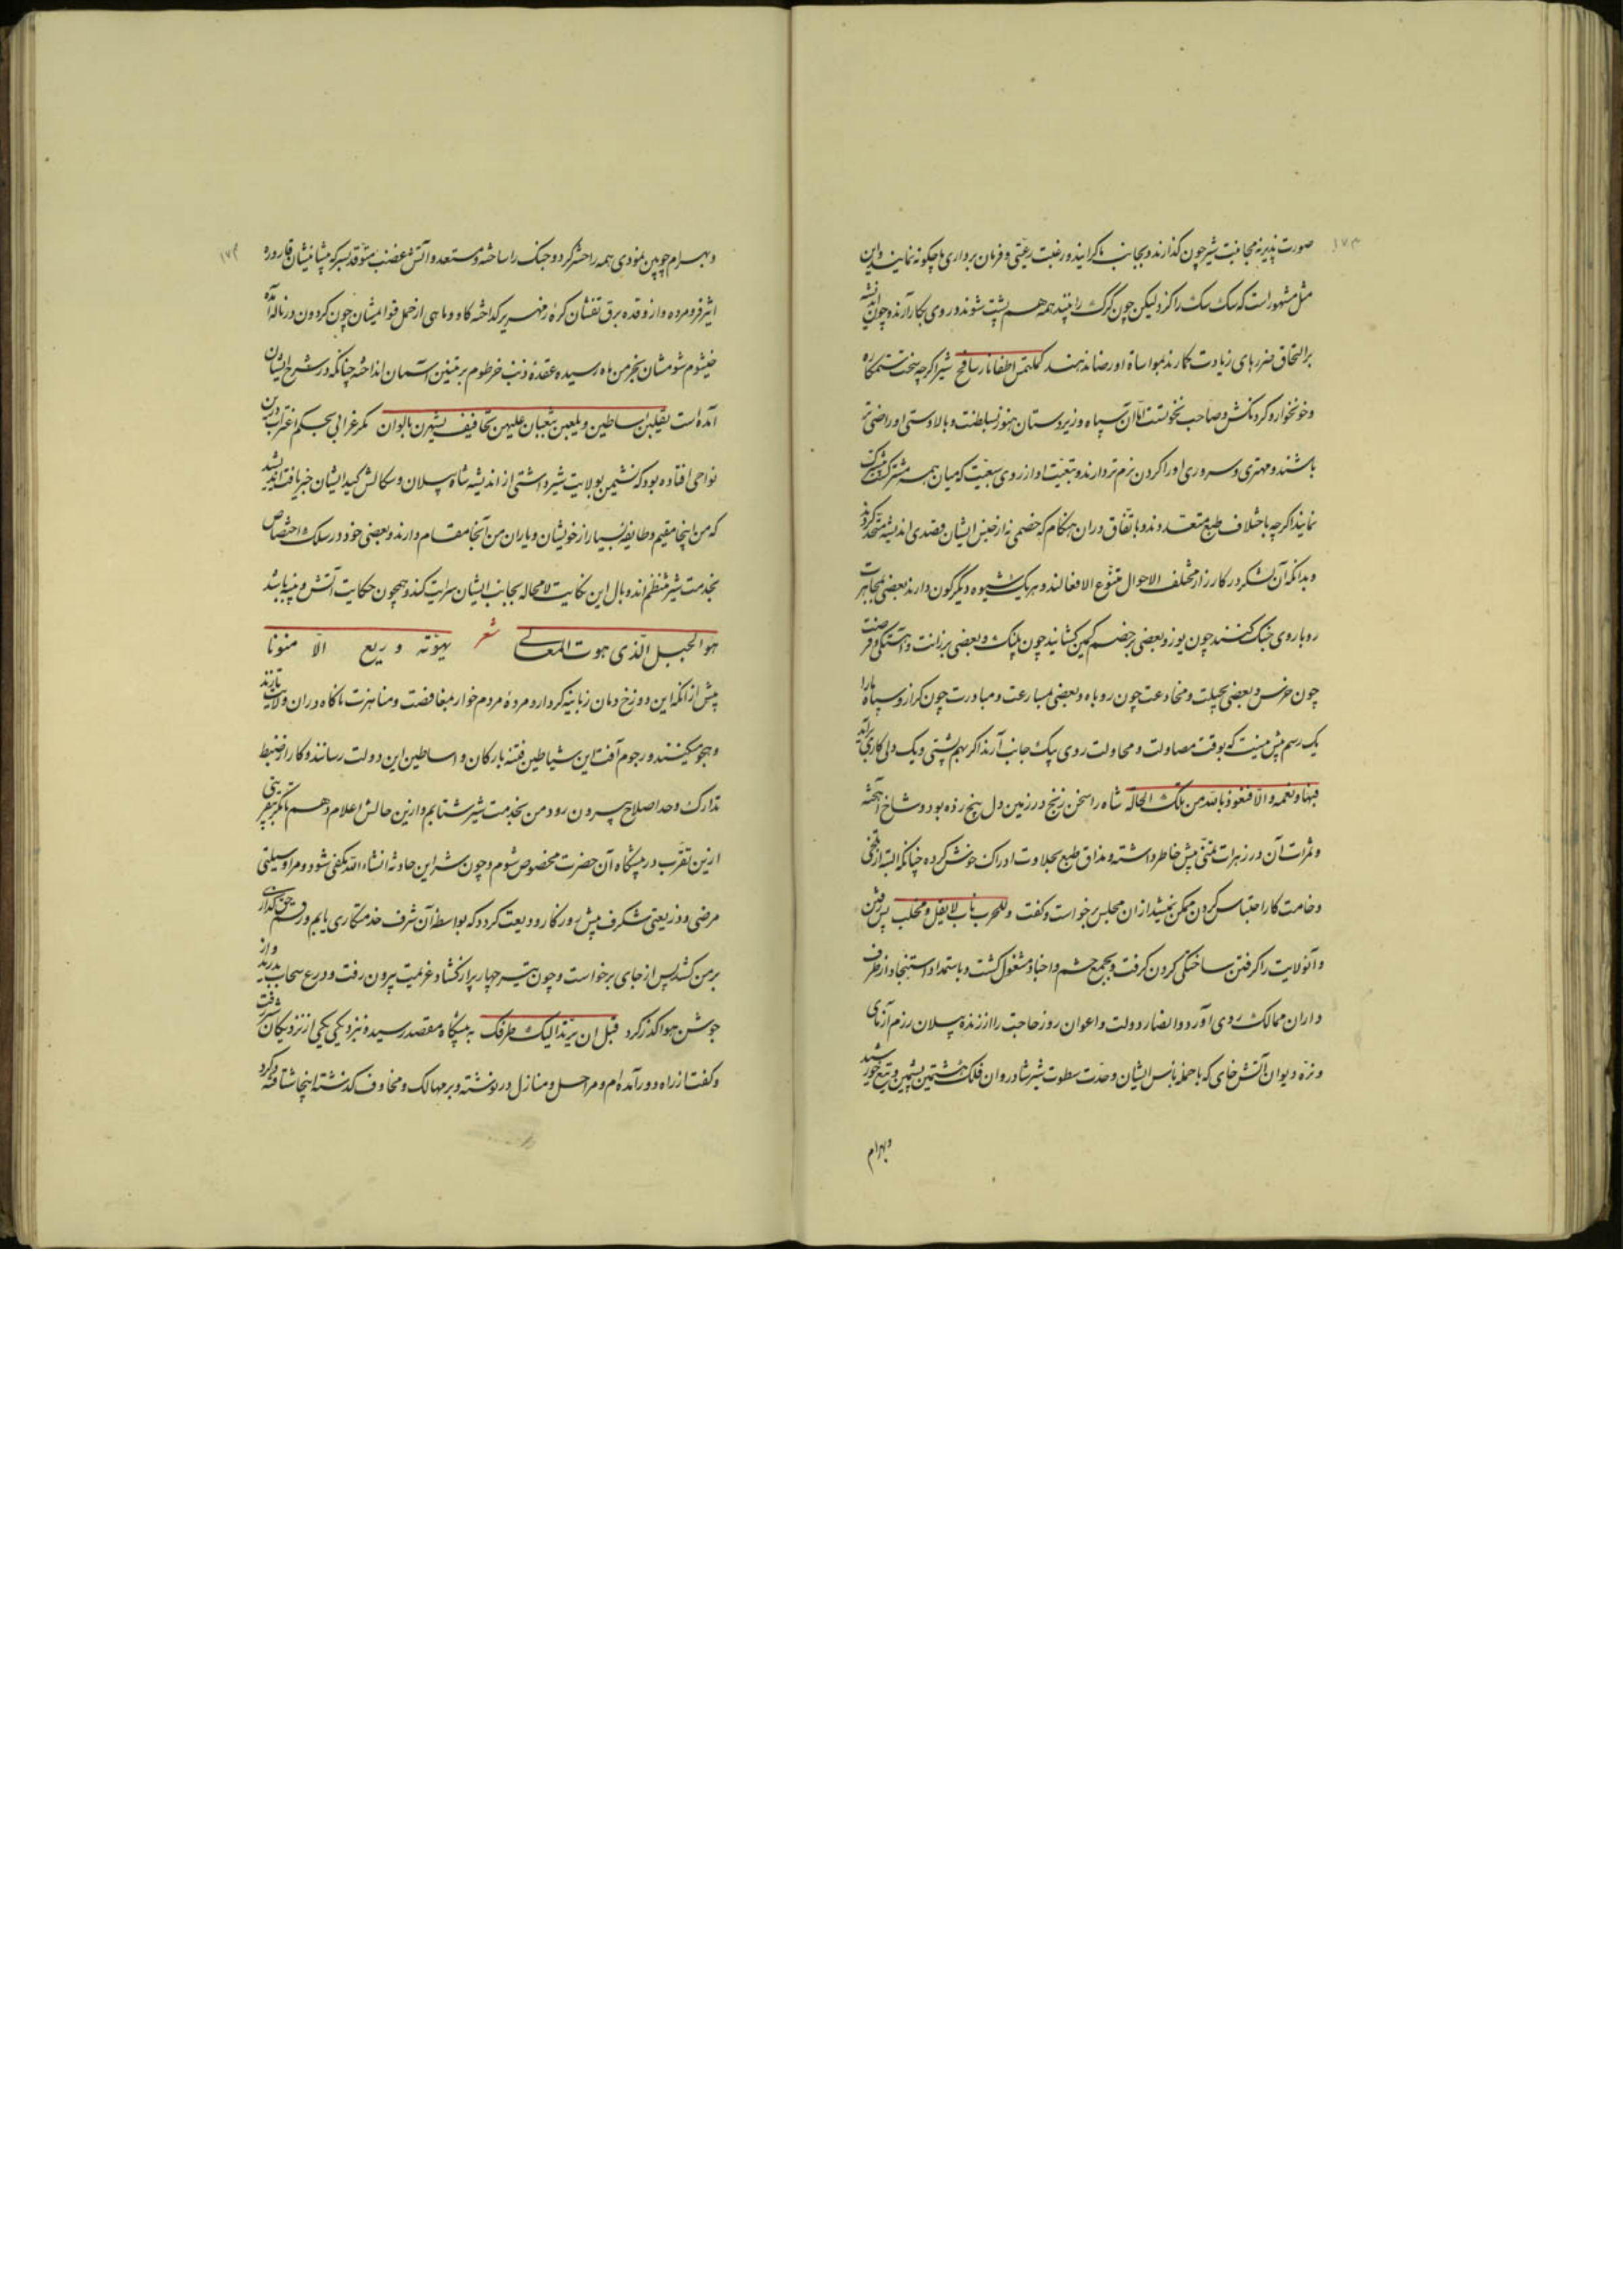 صورت نپذیرد مجانبت شیر چون گذارند و بجانب ما گرایند و رغبت رعیتی و فرمان برداری ما چگونه نمایند و این
مثل مشهور است که سگ سگ را گزد لیکن چون گرگ را بینند همه هم پشت شوند و روی بکار آرند و چون اندیشه
بر التحاق ضررهای زیادت گمارند بمواسات او رضا ندهند کملتمس اطفاء نار بنافخ شیر اگرچه سخت ستمکاره
و خونخوار و گردنکش و صاحب نخوتست اما آن سپاه و زیردستان هنوز بسلطنت و بالادستی او راضی تر
باشند و مهتری و سروری او را گردن نرم تر دارند و تبعیت او از روی سبعیت که میان همه مشترکست
نمایند اگرچه باختلاف طبع متعددند و باتفاق در آن هنگام که خصمی نه از جنس ایشان قصدی اندیشد متحد گردند
و بدانکه آن لشکر در کارزار مختلف الاحوال متنوع الافعالند و هر یک شیوه دیگر گون دارند بعضی بمجاهرت
رویاروی جنگ کنند چون یوز و بعضی بر خصم کمین گشایند چون پلنگ و بعضی برزانت و آهستگی و فرصت
چون خرس و بعضی بحیلت و مخادعت چون روباه و بعضی بمسارعت و مبادرت چون گراز و سپاه ما را
یک رسم بیش نیست که بوقت مصاولت و محاولت روی بیک جانب آرند اگر بهم پشتی و یک دلی کاری برآید
فبها و نعمه و الا فنعوذ بالله من تلک الحاله شاه را سخن زنج در زمین دل بیخ زده بود و شاخ آهخته
و ثمرات آن در زهرات تمنی پیش خاطر داشته و مذاق طبع بحلاوت ادراک خوش کرده چنانکه البته از تلخی
وخامت کار احتباس کردن ممکن نمیشد از آن مجلس برخواست و گفت و للحرب ناب لا یفل و مخلب پس رفتن
و آن ولایت را گرفتن ساختگی کردن گرفت و بجمع حشم و اجناد مشغول گشت و باستمداد و استنجاد از طرف
داران ممالک روی آورد و انصار دولت و اعوان روز حاجت را از زنده پیلان رزم آزمای
و نره دیوان آتش خای که با حمله باس ایشان و حدت سطوت شیر شادروان فلک هشتمین پشمین و تیغ خورشید
و بهرام
و بهرام چوبین نمودی همه را حشر کرد و جنگ را ساخته و مستعد و آتش غضب متوقد بسر که پیشانیشان قاروره
اثیر فرو مرده و از وقده برق تفشان کره زمهریر گداخته گاو و ماهی از حمل قوایمشان چون گردون در ناله آمده
خیشوم شومشان بخرمن ماه رسیده عقده ذنب خرطوم بر تنین آسمان انداخته چنانکه در شرح ایشان
آمده است یقلبن اساطین و یلعبن بثعبان علیهن تجافیف یشهرن بالوان مگر غرابی بحکم اغتراب در این
نواحی افتاده بود که نشیمن بولایت شیر داشتی از اندیشه شاه پیلان و سگالش کید ایشان خبر یافت اندیشید
که من اینجا مقیم و طایفه بسیار از خویشان و یاران من آنجا مقام دارند و بعضی خود در سلک اختصاص
بخدمت شیر منتظم اند و بال این نکایت لا محاله بجانب ایشان سرایت کند و همچون حکایت آتش و پنبه باشد
هو الجبل الذی هوت المعالی شعر بهوته و ریع الا منونا
پیش از آنکه این دوزخ دمان زبانیه کردار و مرده مردم خوار بمغافصت و مناهزت ناگاه در آن ولایت تازند
و هجوم کنند و رجوم آفت این شیاطین فتنه بارکان و اساطین این دولت رسانند و کار از ضبط
تدارک و حد اصلاح بیرون رود من بخدمت شیر شتابم و از این حالش اعلام دهم
از این تقرب در پیشگاه آن حضرت مخصوص شوم و چون شر این حادثه انشاء الله مکفی شود و مرا وسیلتی
مرضی و ذریعتی شگرف پیش روزگار ودیعت گردد که بواسطه آن شرف خدمتکاری یابم و رسم حق گذاری
بر من کشد پس از جای برخواست و چون تیر چهارپر از گشاد عزیمت بیرون رفت و درع سحاب بدرید و از
جوشن هوا گذر کرد قبل ان یرتد الیک طرفک به پیشگاه مقصد رسید و نزدیکی یکی از نزدیکان شیر رفت
و گفت از راه دور آمده ام و مراحل و منازل در نوشته و بر مهالک و مخاوف گذشته اینجا شتافته